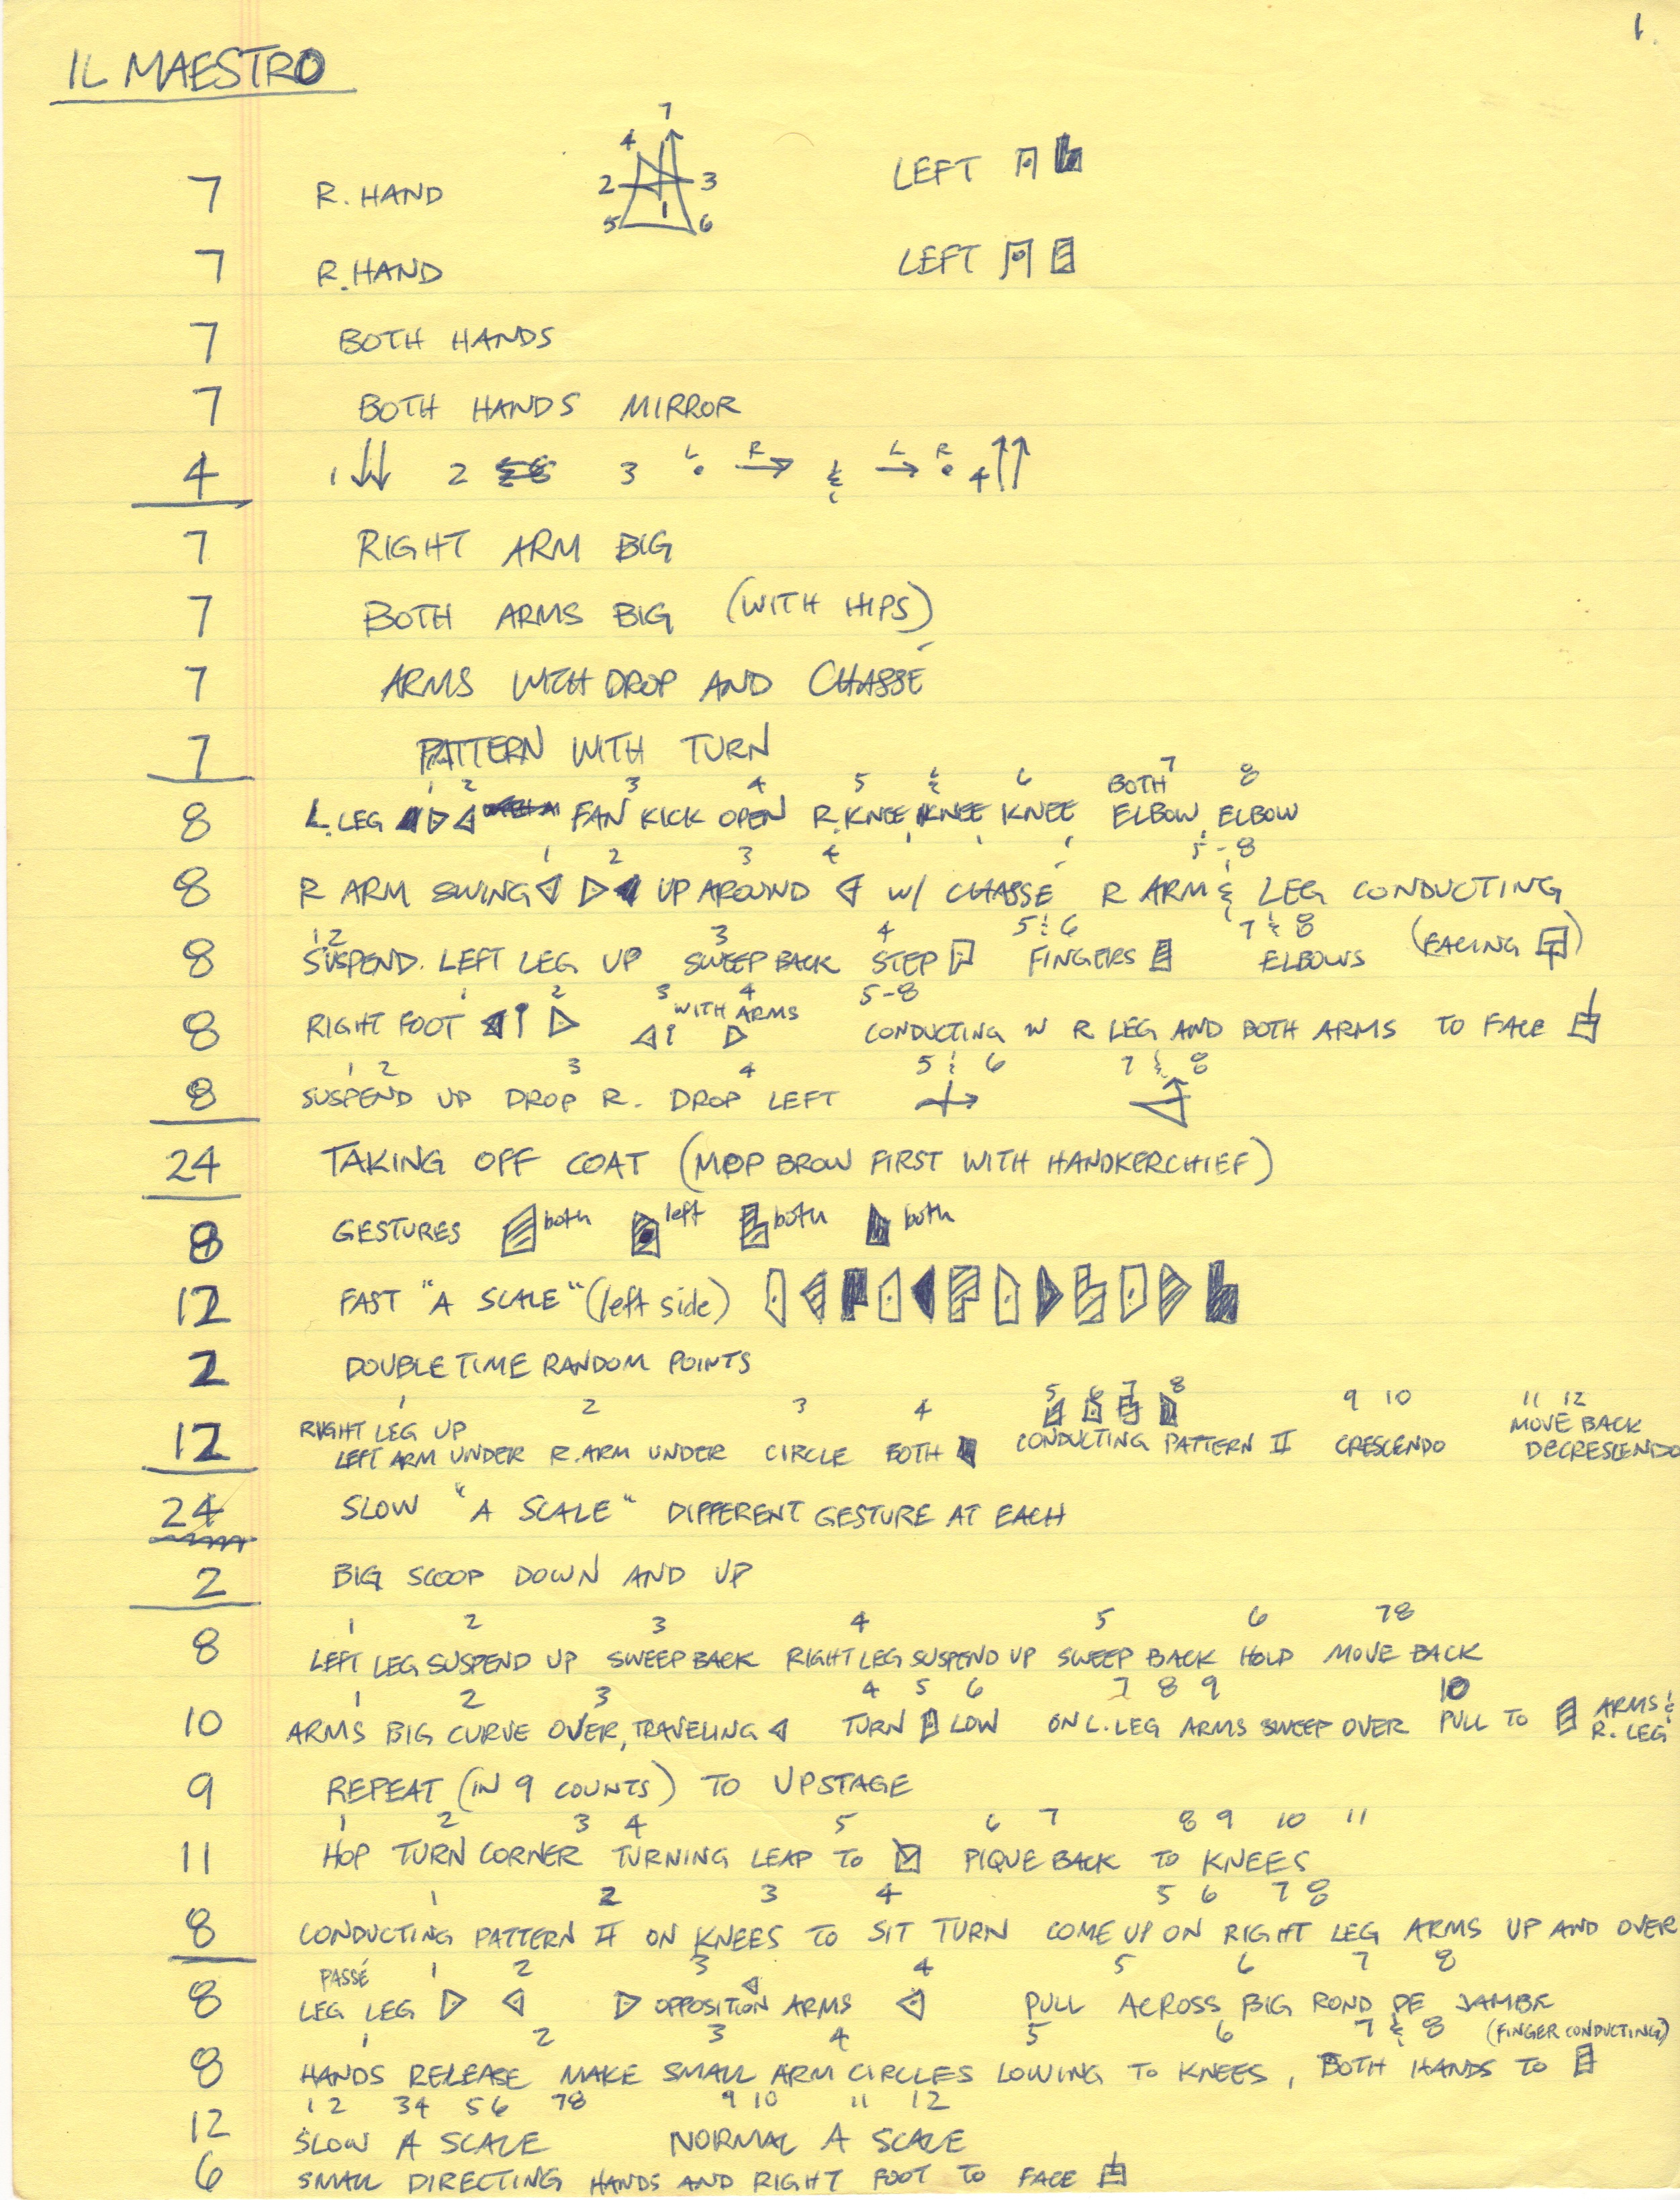 1.
IL MAESTRO
7 R. HAND 1 2 3 4 5 6 7 LEFT
7 R. HAND LEFT
7 BOTH HANDS
7 BOTH HANDS MIRROR
4 1 2 3 L R & L R 4
7 RIGHT ARM BIG
7 BOTH ARMS BIG (WITH HIPS)
7 ARMS WITH DROP AND CHASSÉ
7 PATTERN WITH TURN
1 2 3 4 5 & 6 BOTH 7 8
8 L. LEG FAN KICK OPEN R. KNEE, KNEE KNEE ELBOW, ELBOW
1 2 3 4 5-8
8 R ARM SWING UP AROUND W/ CHASSÉ R ARM & LEG CONDUCTING
1 2 3 4 5 & 6 7 & 8
8 SUSPEND. LEFT LEG UP SWEEP BACK STEP FINGERS ELBOWS (FACING )
1 2 3 WITH ARMS 4 5-8
8 RIGHT FOOT CONDUCTING W R LEG AND BOTH ARMS TO FACE
1 2 3 4 5 & 6 7 & 8
8 SUSPEND UP DROP R. DROP LEFT
24 TAKING OFF COAT (MOP BROW FIRST WITH HANDKERCHIEF)
8 GESTURES both left both both
12 FAST "A SCALE" (left side)
2 DOUBLE TIME RANDOM POINTS
1 2 3 4 5 6 7 8 9 10 11 12
RIGHT LEG UP MOVE BACK
12 LEFT ARM UNDER R. ARM UNDER CIRCLE BOTH CONDUCTING PATTERN II CRESCENDO DECRESCENDO
24 SLOW "A SCALE" DIFFERENT GESTURE AT EACH
2 BIG SCOOP DOWN AND UP
1 2 3 4 5 6 7 8
8 LEFT LEG SUSPEND UP SWEEP BACK RIGHT LEG SUSPEND UP SWEEP BACK HOLD MOVE BACK
1 2 3 4 5 6 7 8 9 10
10 ARMS BIG CURVE OVER, TRAVELING TURN LOW ON L. LEG ARMS SWEEP OVER PULL TO ARMS & R. LEG
9 REPEAT (IN 9 COUNTS) TO UPSTAGE
1 2 3 4 5 6 7 8 9 10 11
11 HOP TURN CORNER TURNING LEAP TO PIQUE BACK TO KNEES
1 2 3 4 5 6 7 8
8 CONDUCTING PATTERN II ON KNEES TO SIT TURN COME UP ON RIGHT LEG ARMS UP AND OVER
PASSÉ 1 2 3 4 5 6 7 8
8 LEG LEG OPPOSITION ARMS PULL ACROSS BIG ROND DE JAMBE
1 2 3 4 5 6 7 & 8 (FINGER CONDUCTING)
8 HANDS RELEASE MAKE SMALL ARM CIRCLES LOWING TO KNEES, BOTH HANDS TO
1 2 3 4 5 6 7 8 9 10 11 12
12 SLOW A SCALE NORMAL A SCALE
6 SMALL DIRECTING HANDS AND RIGHT FOOT TO FACE